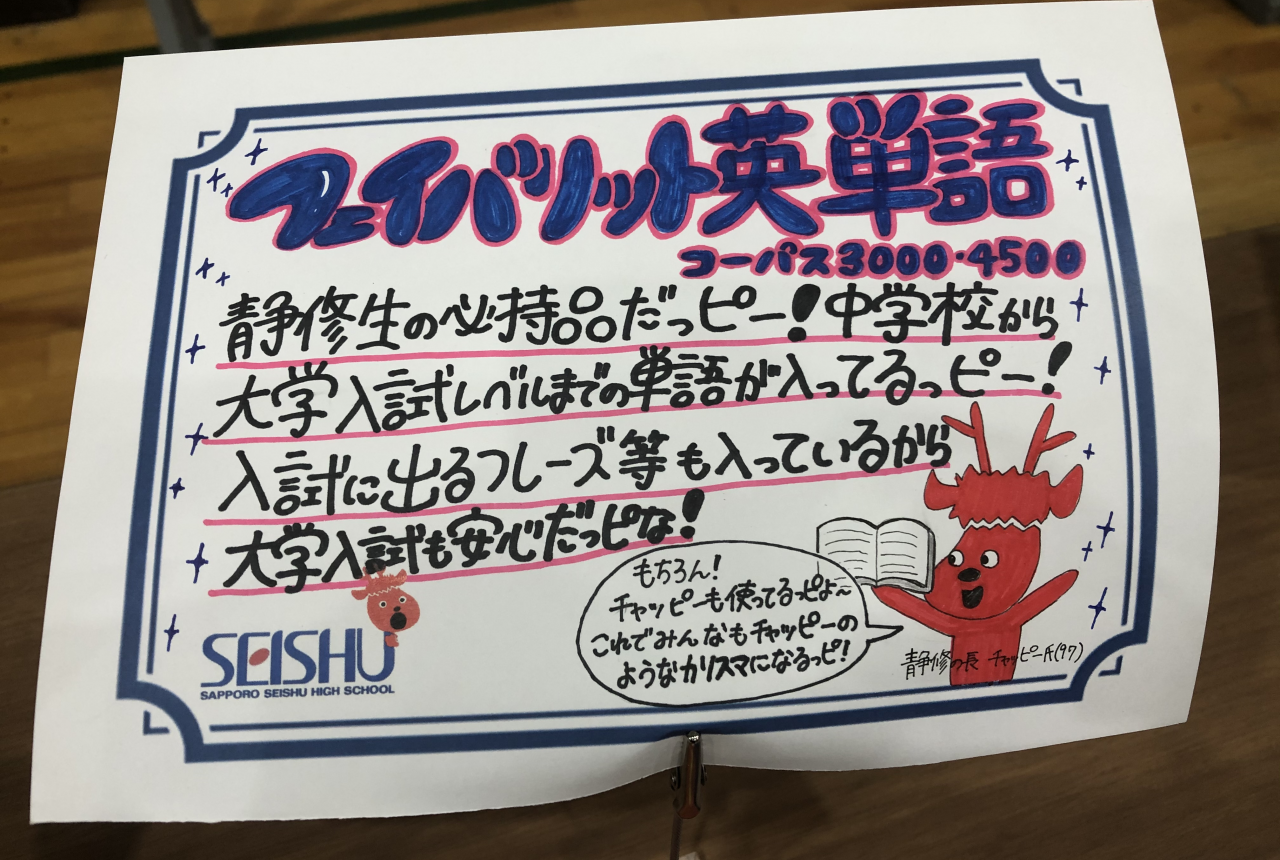 フェイバリット英単語
コーパス3000・4500
青静修生の必持品だっピー!中学校から
大学入試レベルまでの単語が入ってるっピー!
入試に出るフレーズ等も入っているから
大学入試も安心だっピな!
もちろん!
チャッピーも使ってるっぴよ〜
これでみんなもチャッピーの
ようなカリスマになるっピ!
静修の長 チャッピー氏(97)
SEISHU
SAPPORO SEISHU HIGH SCHOOL